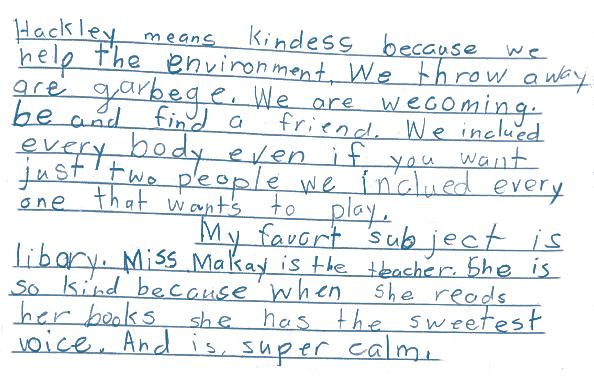 Hackley means kindess because we
help the environment. We throw away
are garbege. We are wecoming.
be and find a friend. We inclued
every body even if you want
just two people we inclued every
one that wants to play.
My favort subject is
libary. Miss Makay is the teacher. She is
so kind because when she reads
her books she has the sweetest
voice. And is, super calm.